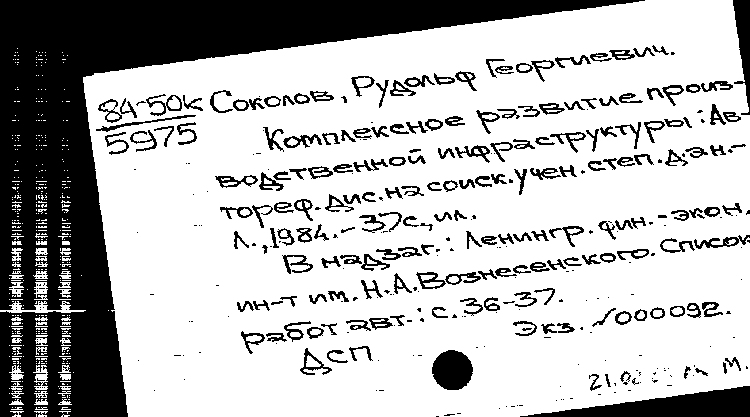 84-50к Соколов, Рудольф Георгиевич.
5975
Комплексное развитие произ-
водственной инфраструктуры : Ав-
тореф. дис. на соиск. учен. степ. д.э.н. -
Л., 1984. - 37с., ил.
В надзаг. : Ленингр. фин. - экон.
ин-т им. Н.А. Вознесенского. Список
работ авт. : с. 36-37.
Экз. √000092.
ДСП
21.02 М.